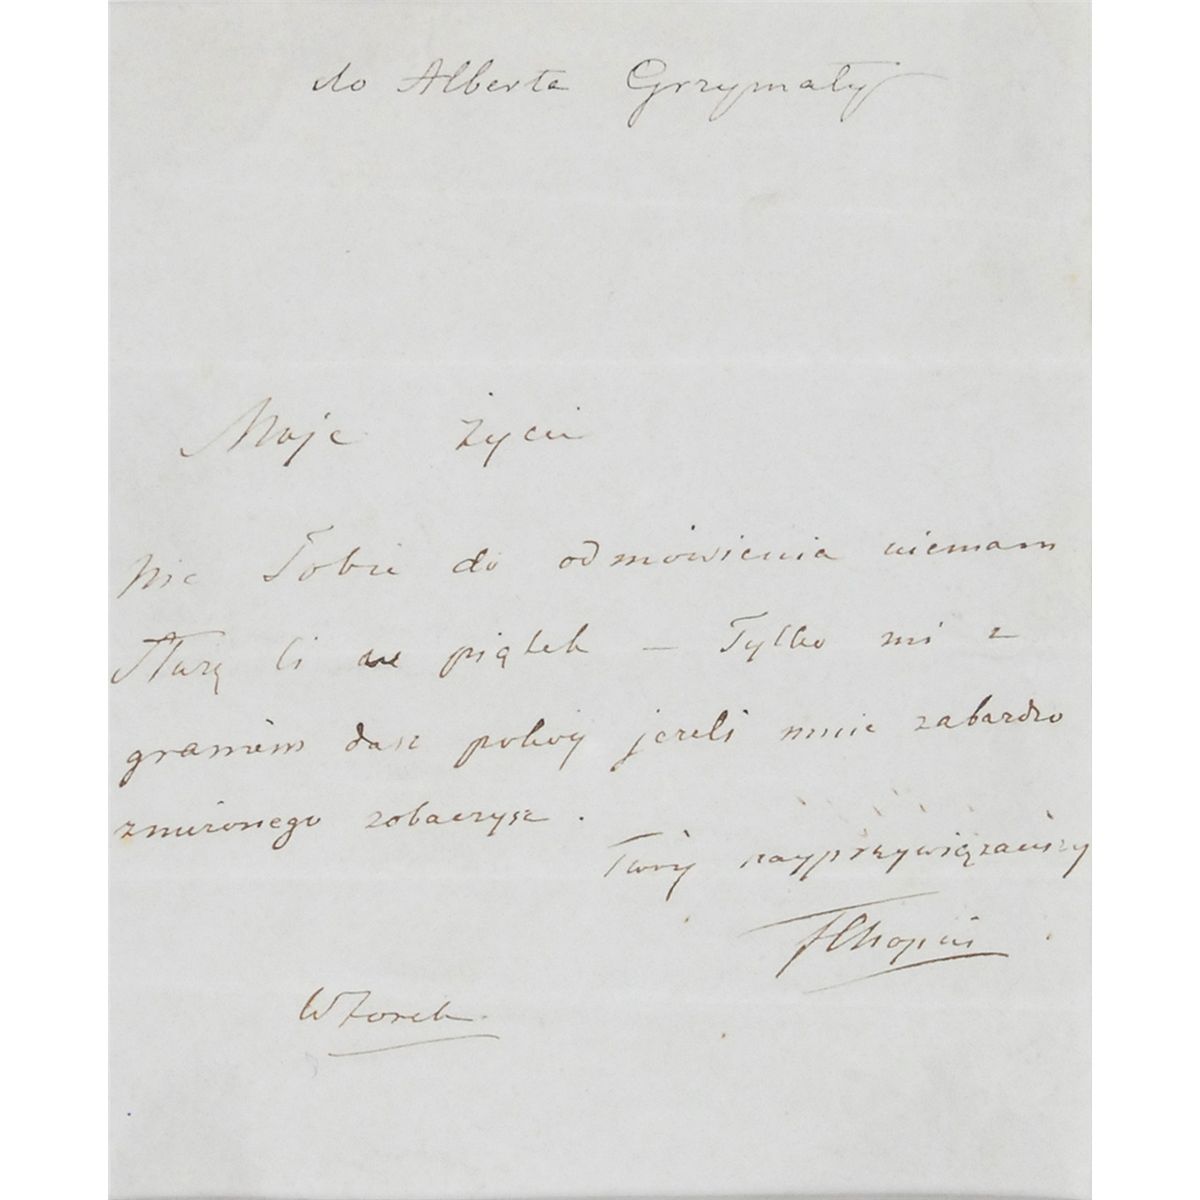 do Alberta Grzymały
Moje Życie
Nic Tobie do odmówienia niemam
Służę Ci we piątek — Tylko mi z
graniem dasz pokój jeżeli mnie zabardzo
znużonego zobaczysz.
Twój nayprzywiązańszy
FChopin
Wtorek.